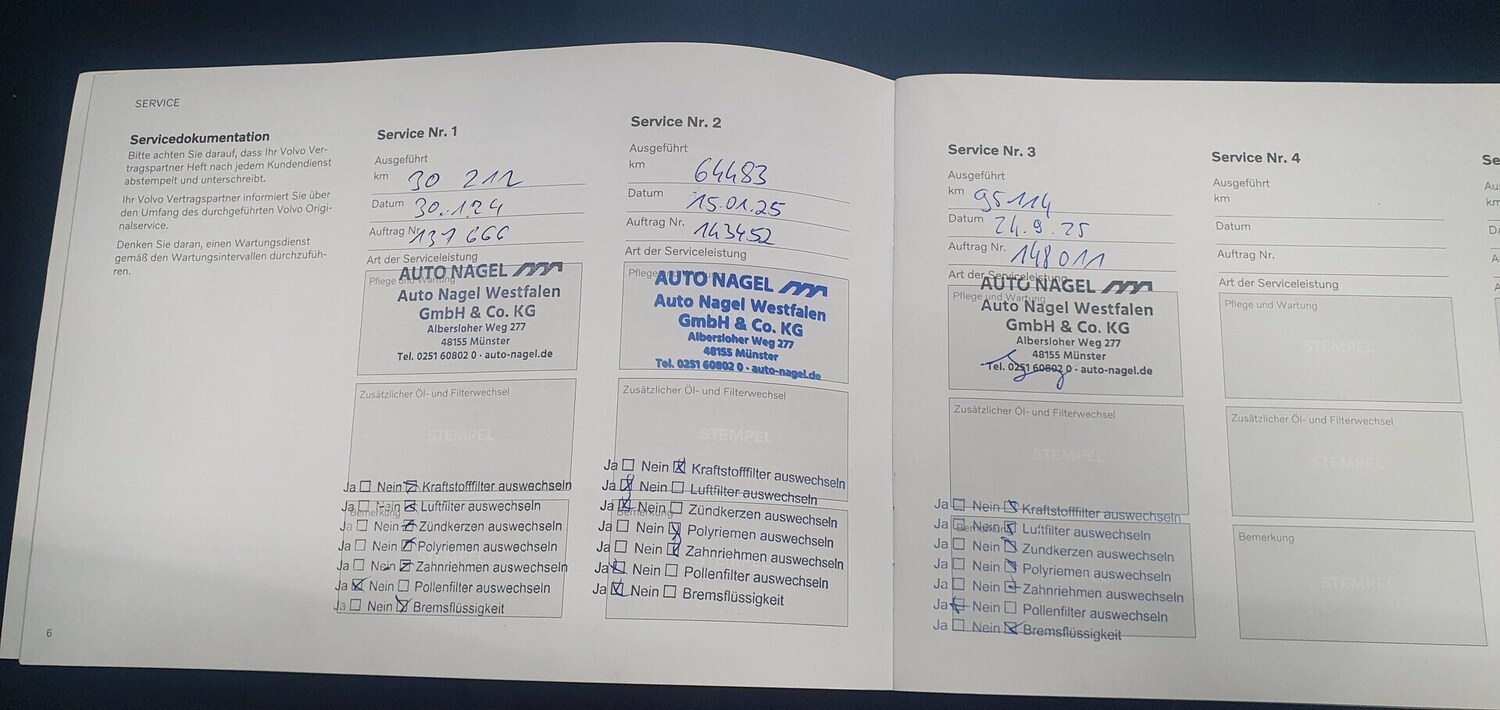 SERVICE
Servicedokumentation
Bitte achten Sie darauf, dass Ihr Volvo Ver-
tragspartner Heft nach jedem Kundendienst
abstempelt und unterschreibt.
Ihr Volvo Vertragspartner informiert Sie über
den Umfang des durchgeführten Volvo Origi-
nalservice.
Denken Sie daran, einen Wartungsdienst
gemäß den Wartungsintervallen durchzufüh-
ren.
6
Service Nr. 1
Ausgeführt
km 30 212
Datum 30.1.24
Auftrag Nr. 137 666
Art der Serviceleistung
Pflege und Wartung
AUTO NAGEL
Auto Nagel Westfalen
GmbH & Co. KG
Albersloher Weg 277
48155 Münster
Tel. 0251 60802 0 · auto-nagel.de
Zusätzlicher Öl- und Filterwechsel
STEMPEL
Bemerkung
Ja Nein Kraftstofffilter auswechseln
Ja Nein Luftfilter auswechseln
Ja Nein Zündkerzen auswechseln
Ja Nein Polyriemen auswechseln
Ja Nein Zahnriehmen auswechseln
Ja Nein Pollenfilter auswechseln
Ja Nein Bremsflüssigkeit
Service Nr. 2
Ausgeführt
km 64483
Datum 15.01.25
Auftrag Nr. 143452
Art der Serviceleistung
Pflege und Wartung
AUTO NAGEL
Auto Nagel Westfalen
GmbH & Co. KG
Albersloher Weg 277
48155 Münster
Tel. 0251 60802 0 · auto-nagel.de
Zusätzlicher Öl- und Filterwechsel
STEMPEL
Bemerkung
Ja Nein Kraftstofffilter auswechseln
Ja Nein Luftfilter auswechseln
Ja Nein Zündkerzen auswechseln
Ja Nein Polyriemen auswechseln
Ja Nein Zahnriehmen auswechseln
Ja Nein Pollenfilter auswechseln
Ja Nein Bremsflüssigkeit
Service Nr. 3
Ausgeführt
km 95114
Datum 24.9.25
Auftrag Nr. 148011
Art der Serviceleistung
Pflege und Wartung
AUTO NAGEL
Auto Nagel Westfalen
GmbH & Co. KG
Albersloher Weg 277
48155 Münster
Tel. 0251 60802 0 · auto-nagel.de
Zusätzlicher Öl- und Filterwechsel
STEMPEL
Bemerkung
Ja Nein Kraftstofffilter auswechseln
Ja Nein Luftfilter auswechseln
Ja Nein Zündkerzen auswechseln
Ja Nein Polyriemen auswechseln
Ja Nein Zahnriehmen auswechseln
Ja Nein Pollenfilter auswechseln
Ja Nein Bremsflüssigkeit
Service Nr. 4
Ausgeführt
km
Datum
Auftrag Nr.
Art der Serviceleistung
Pflege und Wartung
STEMPEL
Zusätzlicher Öl- und Filterwechsel
STEMPEL
Bemerkung
STEMPEL